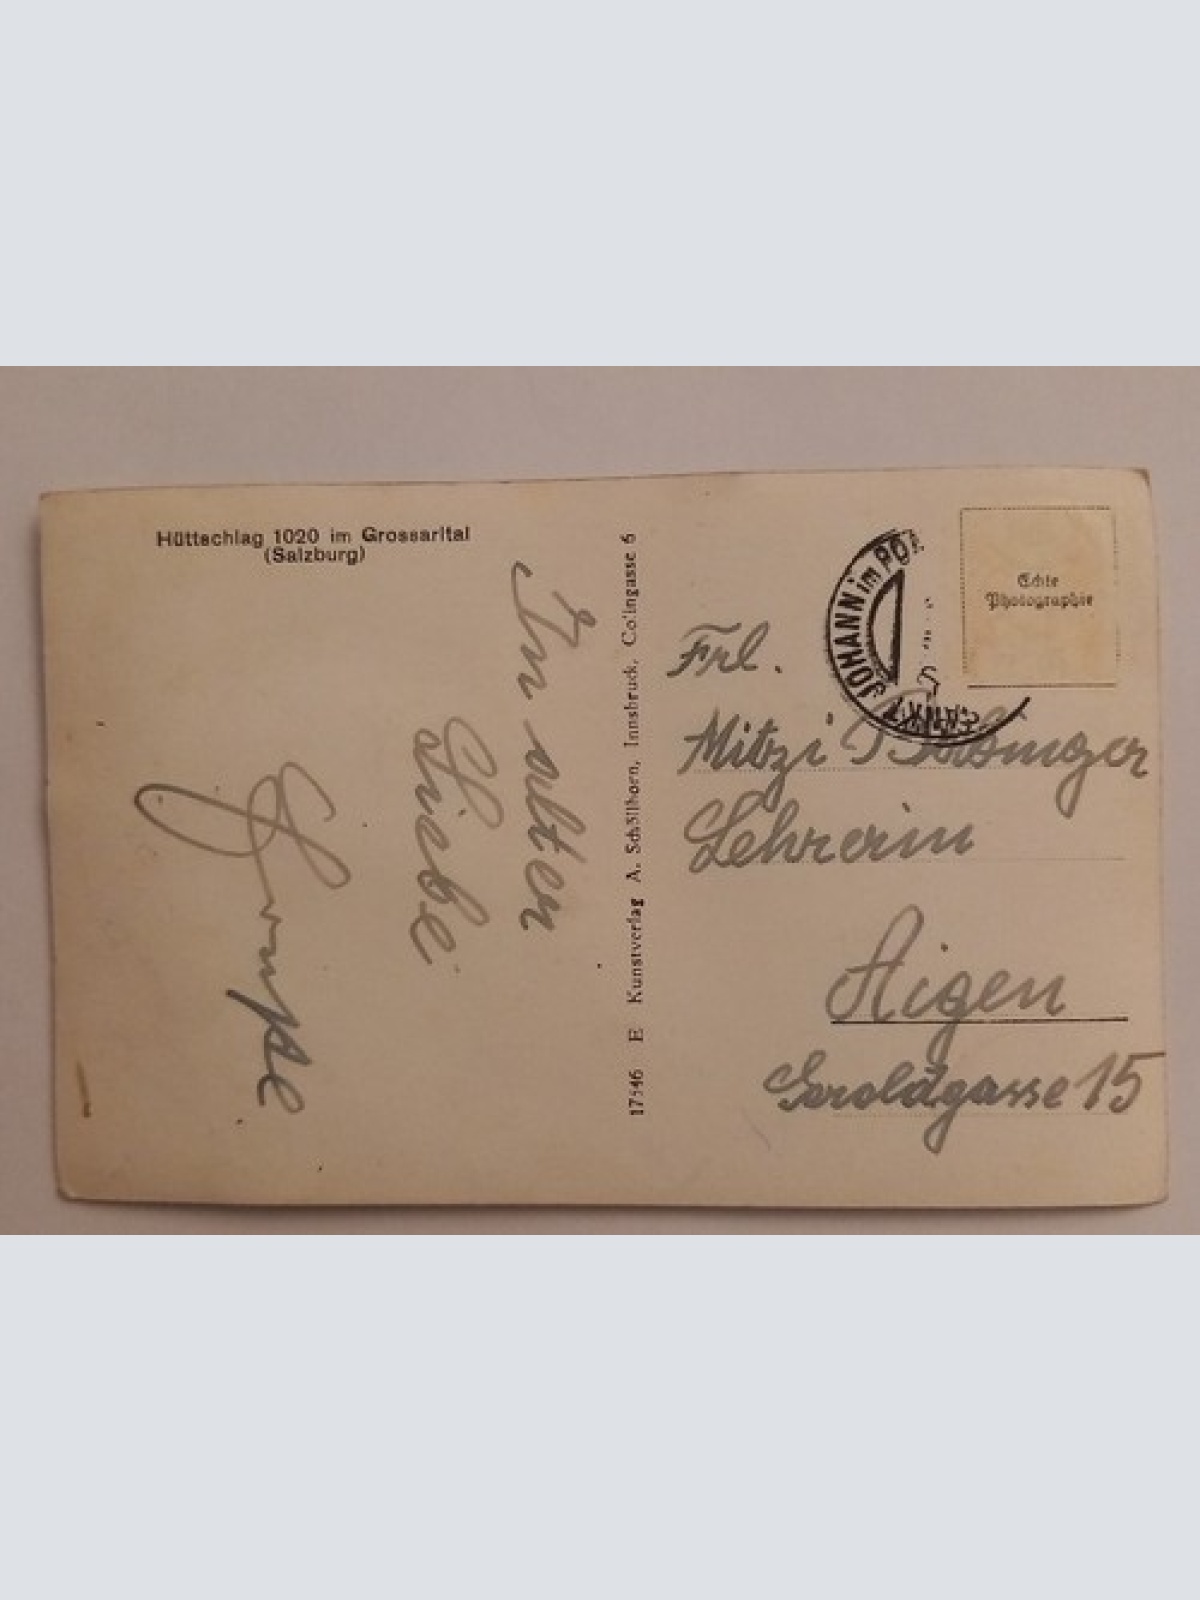 Hüttschlag 1020 im Grossarltal
(Salzburg)
In alter
Liebe
17546 E Kunstverlag A. Schöllhorn, Innsbruck, Colingasse 6
SANKT JOHANN im PO
Echte
Photographie
Frl.
Mitzi
Lehrerin
Aigen
Geroldgasse 15